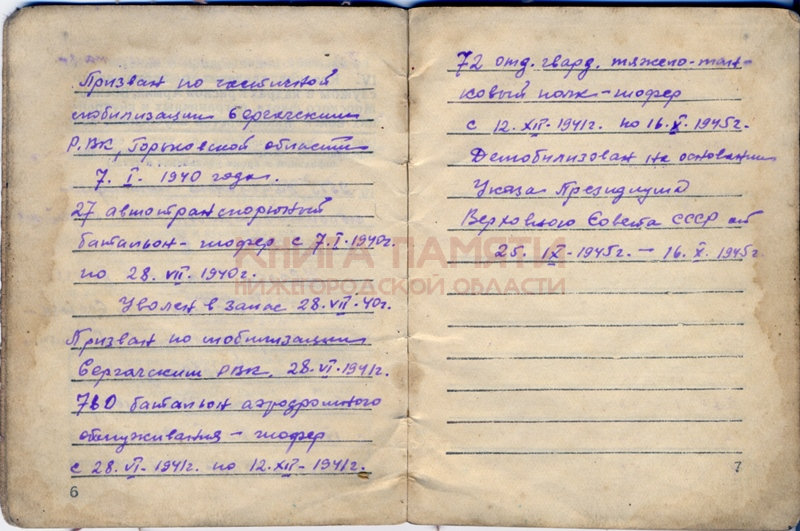 Призван по частичной
мобилизации Сергачским
Р.ВК, Горьковской области
7. I. 1940 года.
27 автотранспортный
батальон - шофер с 7. I - 1940г.
по 28. VII. 1940г.
Уволен в запас 28. VII - 40г.
Призван по мобилизации
Сергачским РВК, 28. VI - 1941г.
760 батальон аэродромного
обслуживания - шофер
с 28. VI - 1941г. по 12. XII - 1941г.
6
72 отд. гвард. тяжело-тан-
ковый полк - шофер
с 12. XII - 1941г. по 16. X. 1945г.
Демобилизован на основании
Указа Президиума
Верховного Совета СССР от
25. IX - 1945г. - 16. X. 1945г
7
КНИГА ПАМЯТИ
НИЖЕГОРОДСКОЙ ОБЛАСТИ